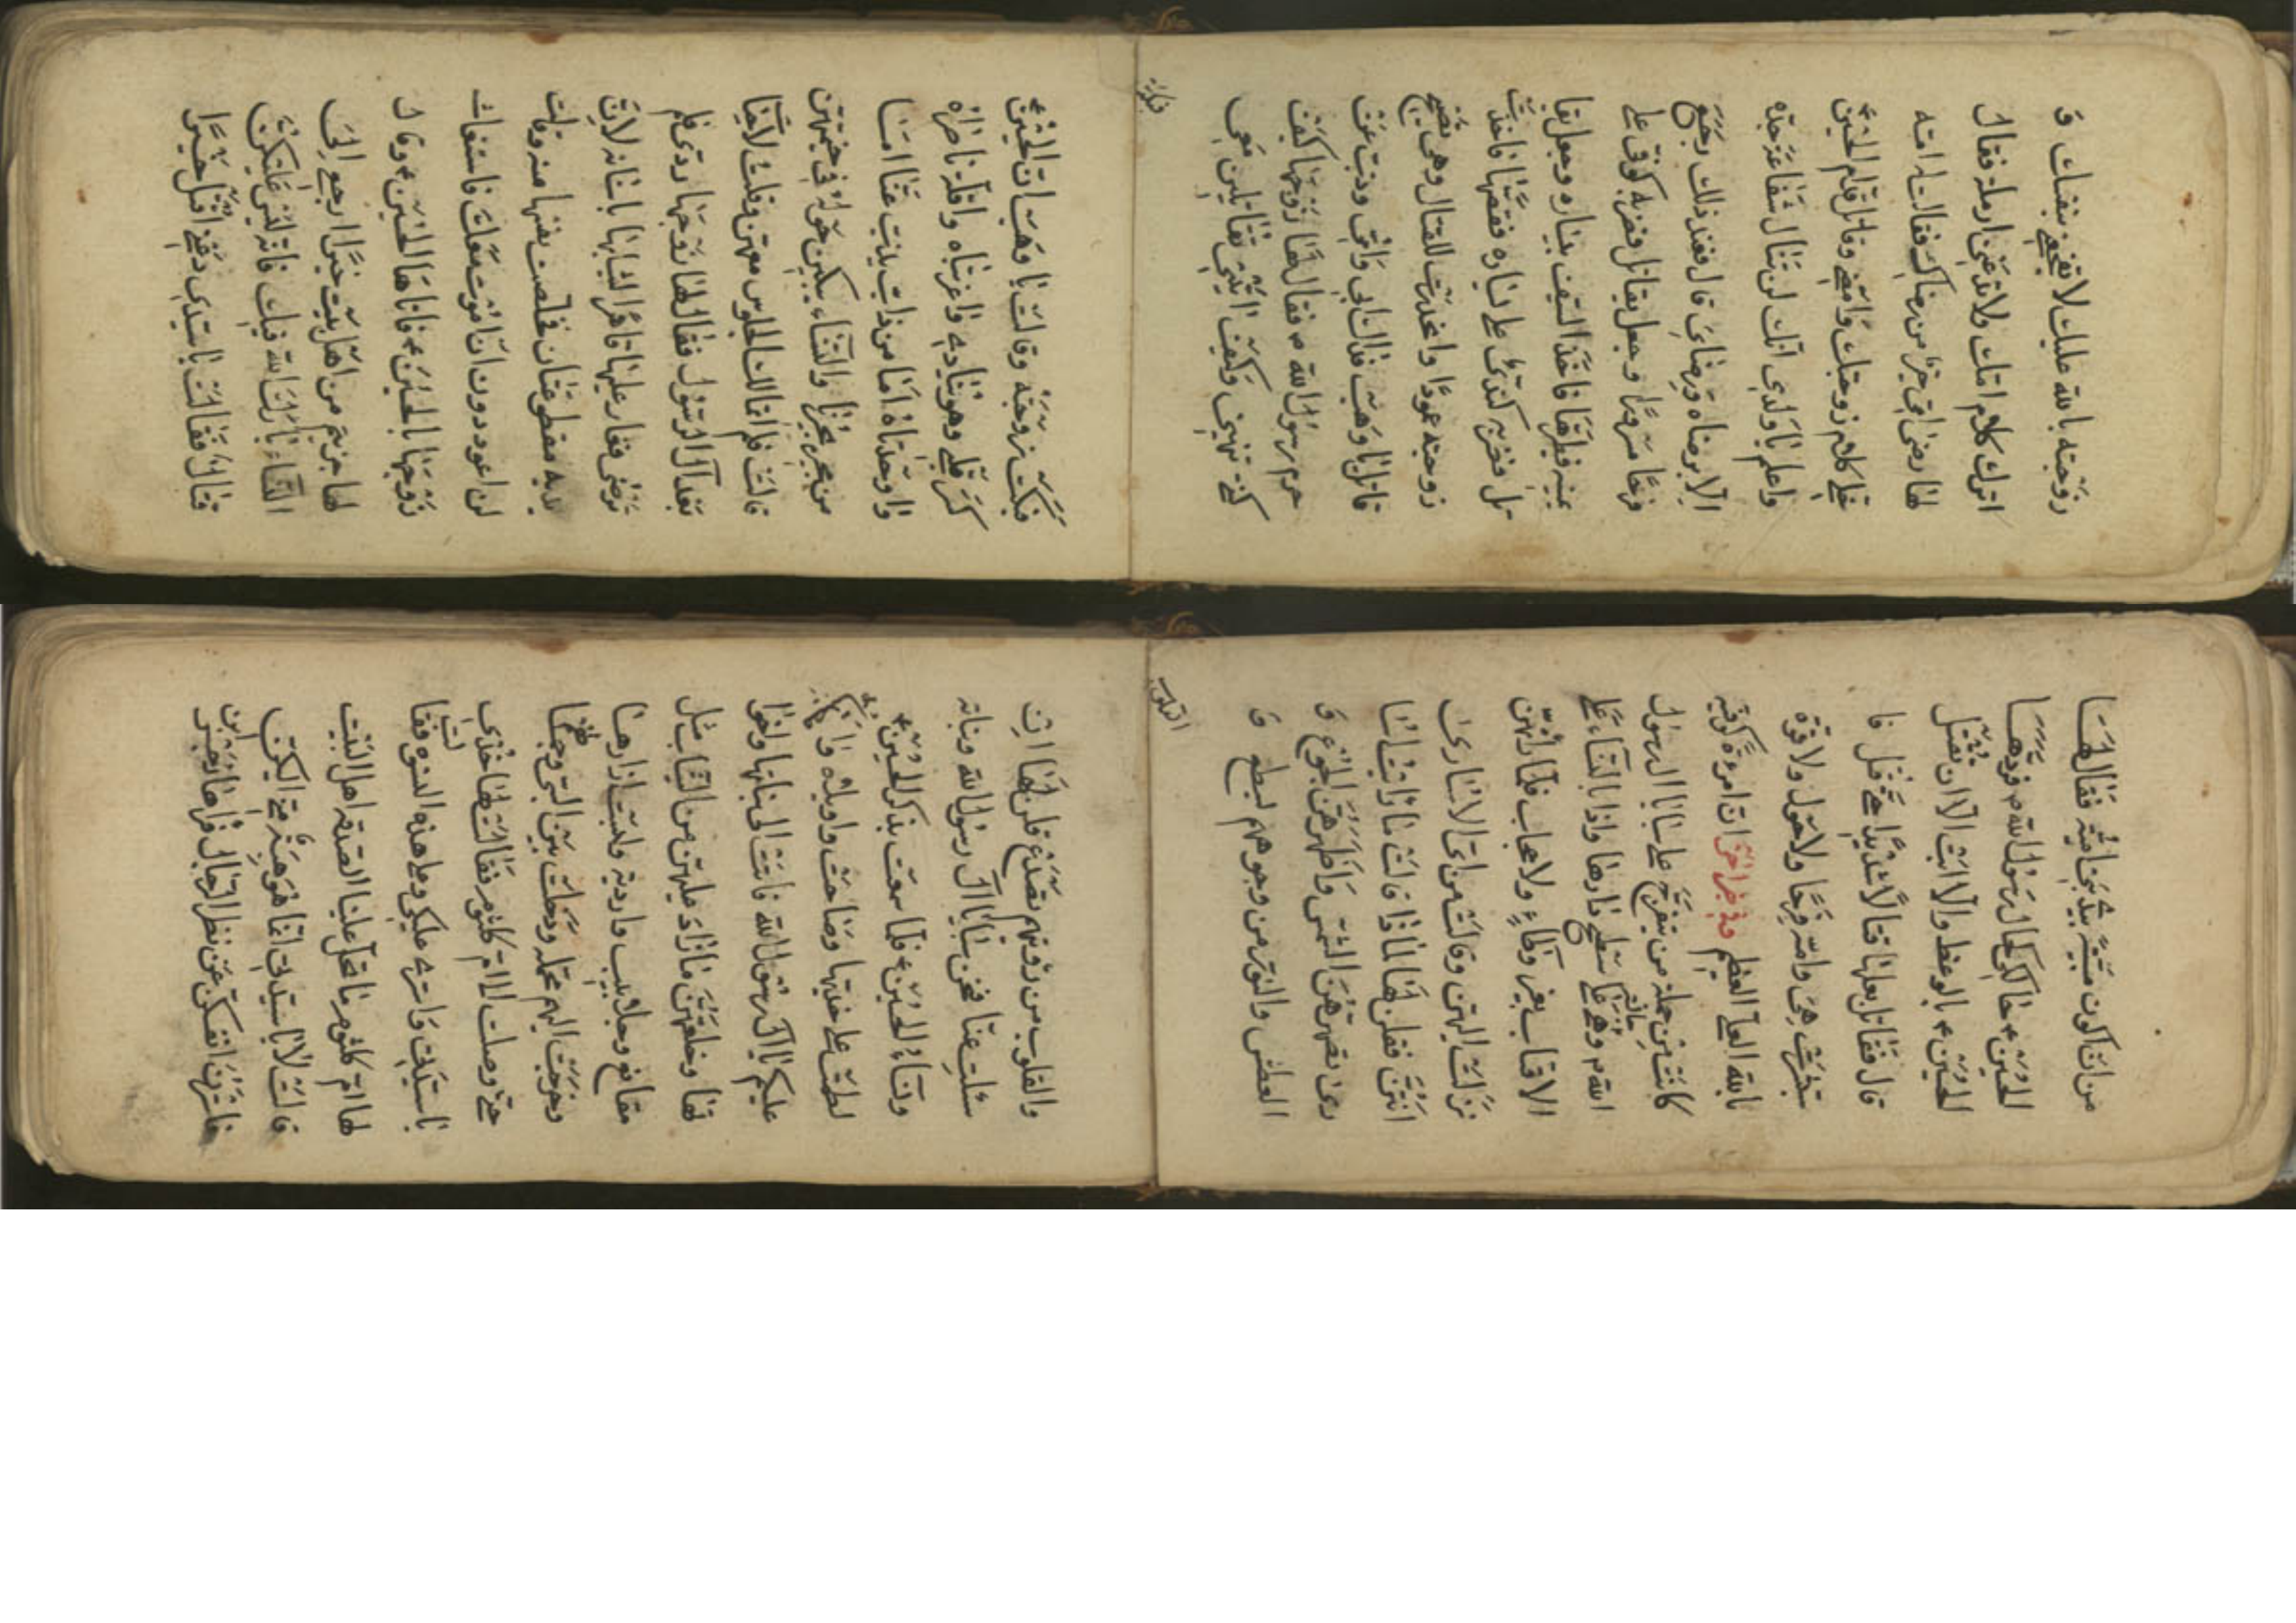 زوجته بالله عليك لا تفجعني بنفسك و
اترك كلام امك ولا تدعني ارملة فقال
لها رضى امي خير من رضاك فقالت له امه
خلي كلام زوجتك وامضي وقاتل قدام الحسين ع
واعلم يا ولدي انك لن تنال شفاعة جده
الا برضاه ورضائي قال فعند ذلك رجع
فرحا مسرورا وجعل يقاتل فضربه كوفي على
يمينه فطيرها فاخذ السيف بيساره وجعل يقا
تل فضربه كندي على يساره فقطعها فاخذت
زوجته عمودا للقتال وهي تصيح
قاتل يا وهب فداك ابي وامي وذب عن
حرم رسول الله ص فقال لها زوجها كيف
كنت تنهيني وكيف انتي تقاتلين معي
فبكت
فبكت زوجته وقالت يا وهب ان الحسين ع
كسر قلبي وهو ينادي واغربتاه واقلة ناصراه
واوحدتاه اما من ذاب يذب عنا اما
من مجير يجيرنا والنساء يبكين حوله في خيمتهن
قالت فلم اتمالك الجلوس معهن وقلت لاحياة
بعد آل الرسول فقال لها زوجها ردي فلم
ترضى فغار عليها لثيابها باسنانه لان
يديه مقطوعتان فخلصت نفسها منه وقالت
لن اعود دون ان اموت معك فاستغاث
زوجها بالحسين ع فاتاها الحسين ع وقال
لها جزيتم من اهل بيت خيرا ارجعي الى
النساء بارك الله فيك فانه ليس عليكن
قتال فقالت يا سيدي دعني اقتل خيرا
من ان اكون مسبية بيد بني امية فقال لها
الحسين ع حالك كحال رسول الله ص فردها
الحسين ع بالوعظ والا ابت الا ان تقتل
قال فقاتل بعلها قتالا شديدا حتى قتل فا
ستشهدت هي وامه فرحا ولا حول ولا قوة
بالله العلي العظيم وفي خبر اخر ان امرءة كوفية
كانت من جملة من يتفرج على سبايا الرسول
الله ص وهي على سطح دارها واذا بالنساء على
الاقتاب بغير وطاء ولا حجاب فلما رأتهن
نزلت اليهن وقالت من اي الاسارى
انتن فقلن لها لماذا قالت ما رايت اسا
رى الشمس الجوع و
العطش والنور من وجوههم لسطع و
القلوب
والقلوب من رؤيتهم تصدع قلن لها ان
سئلت عنا فنحن سبايا آل رسول الله وبناته
ونساء الحسين ع فلما سمعت بذكر الحسين ع
لطمت على خديها وصاحت واويلاه
عليكم يا آل رسول الله فاتت الى بناتها
وخلعتهن ما زاد عليهن من الثياب مثل
مقانع وجلابيب واردية ولبست ازارها
وخرجت اليهم عجله ودخلت بين السبي
حتى وصلت الى ام كلثوم فقالت لها خذي
يا ستي وعلى هذه النسوة فقالت
لها ام كلثوم ما تحل علينا الصدقة اهل البيت
قالت لا يا سيدتي انما هو هدية اليكن
عن نظر الرجال فرأها زجر ابن